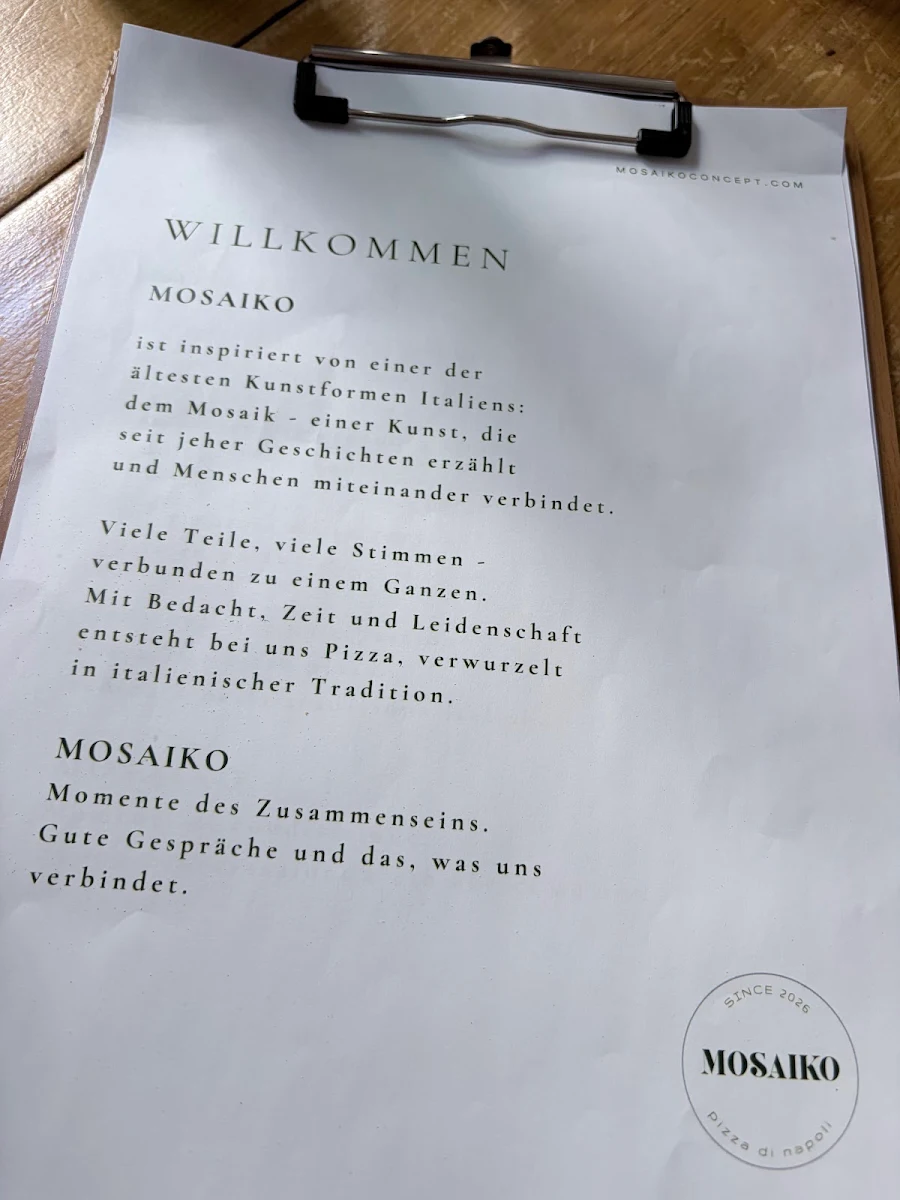 MOSAIKOCONCEPT.COM
WILLKOMMEN
MOSAIKO
ist inspiriert von einer der
ältesten Kunstformen Italiens:
dem Mosaik - einer Kunst, die
seit jeher Geschichten erzählt
und Menschen miteinander verbindet.
Viele Teile, viele Stimmen -
verbunden zu einem Ganzen.
Mit Bedacht, Zeit und Leidenschaft
entsteht bei uns Pizza, verwurzelt
in italienischer Tradition.
MOSAIKO
Momente des Zusammenseins.
Gute Gespräche und das, was uns
verbindet.
SINCE 2026
MOSAIKO
pizza di napoli